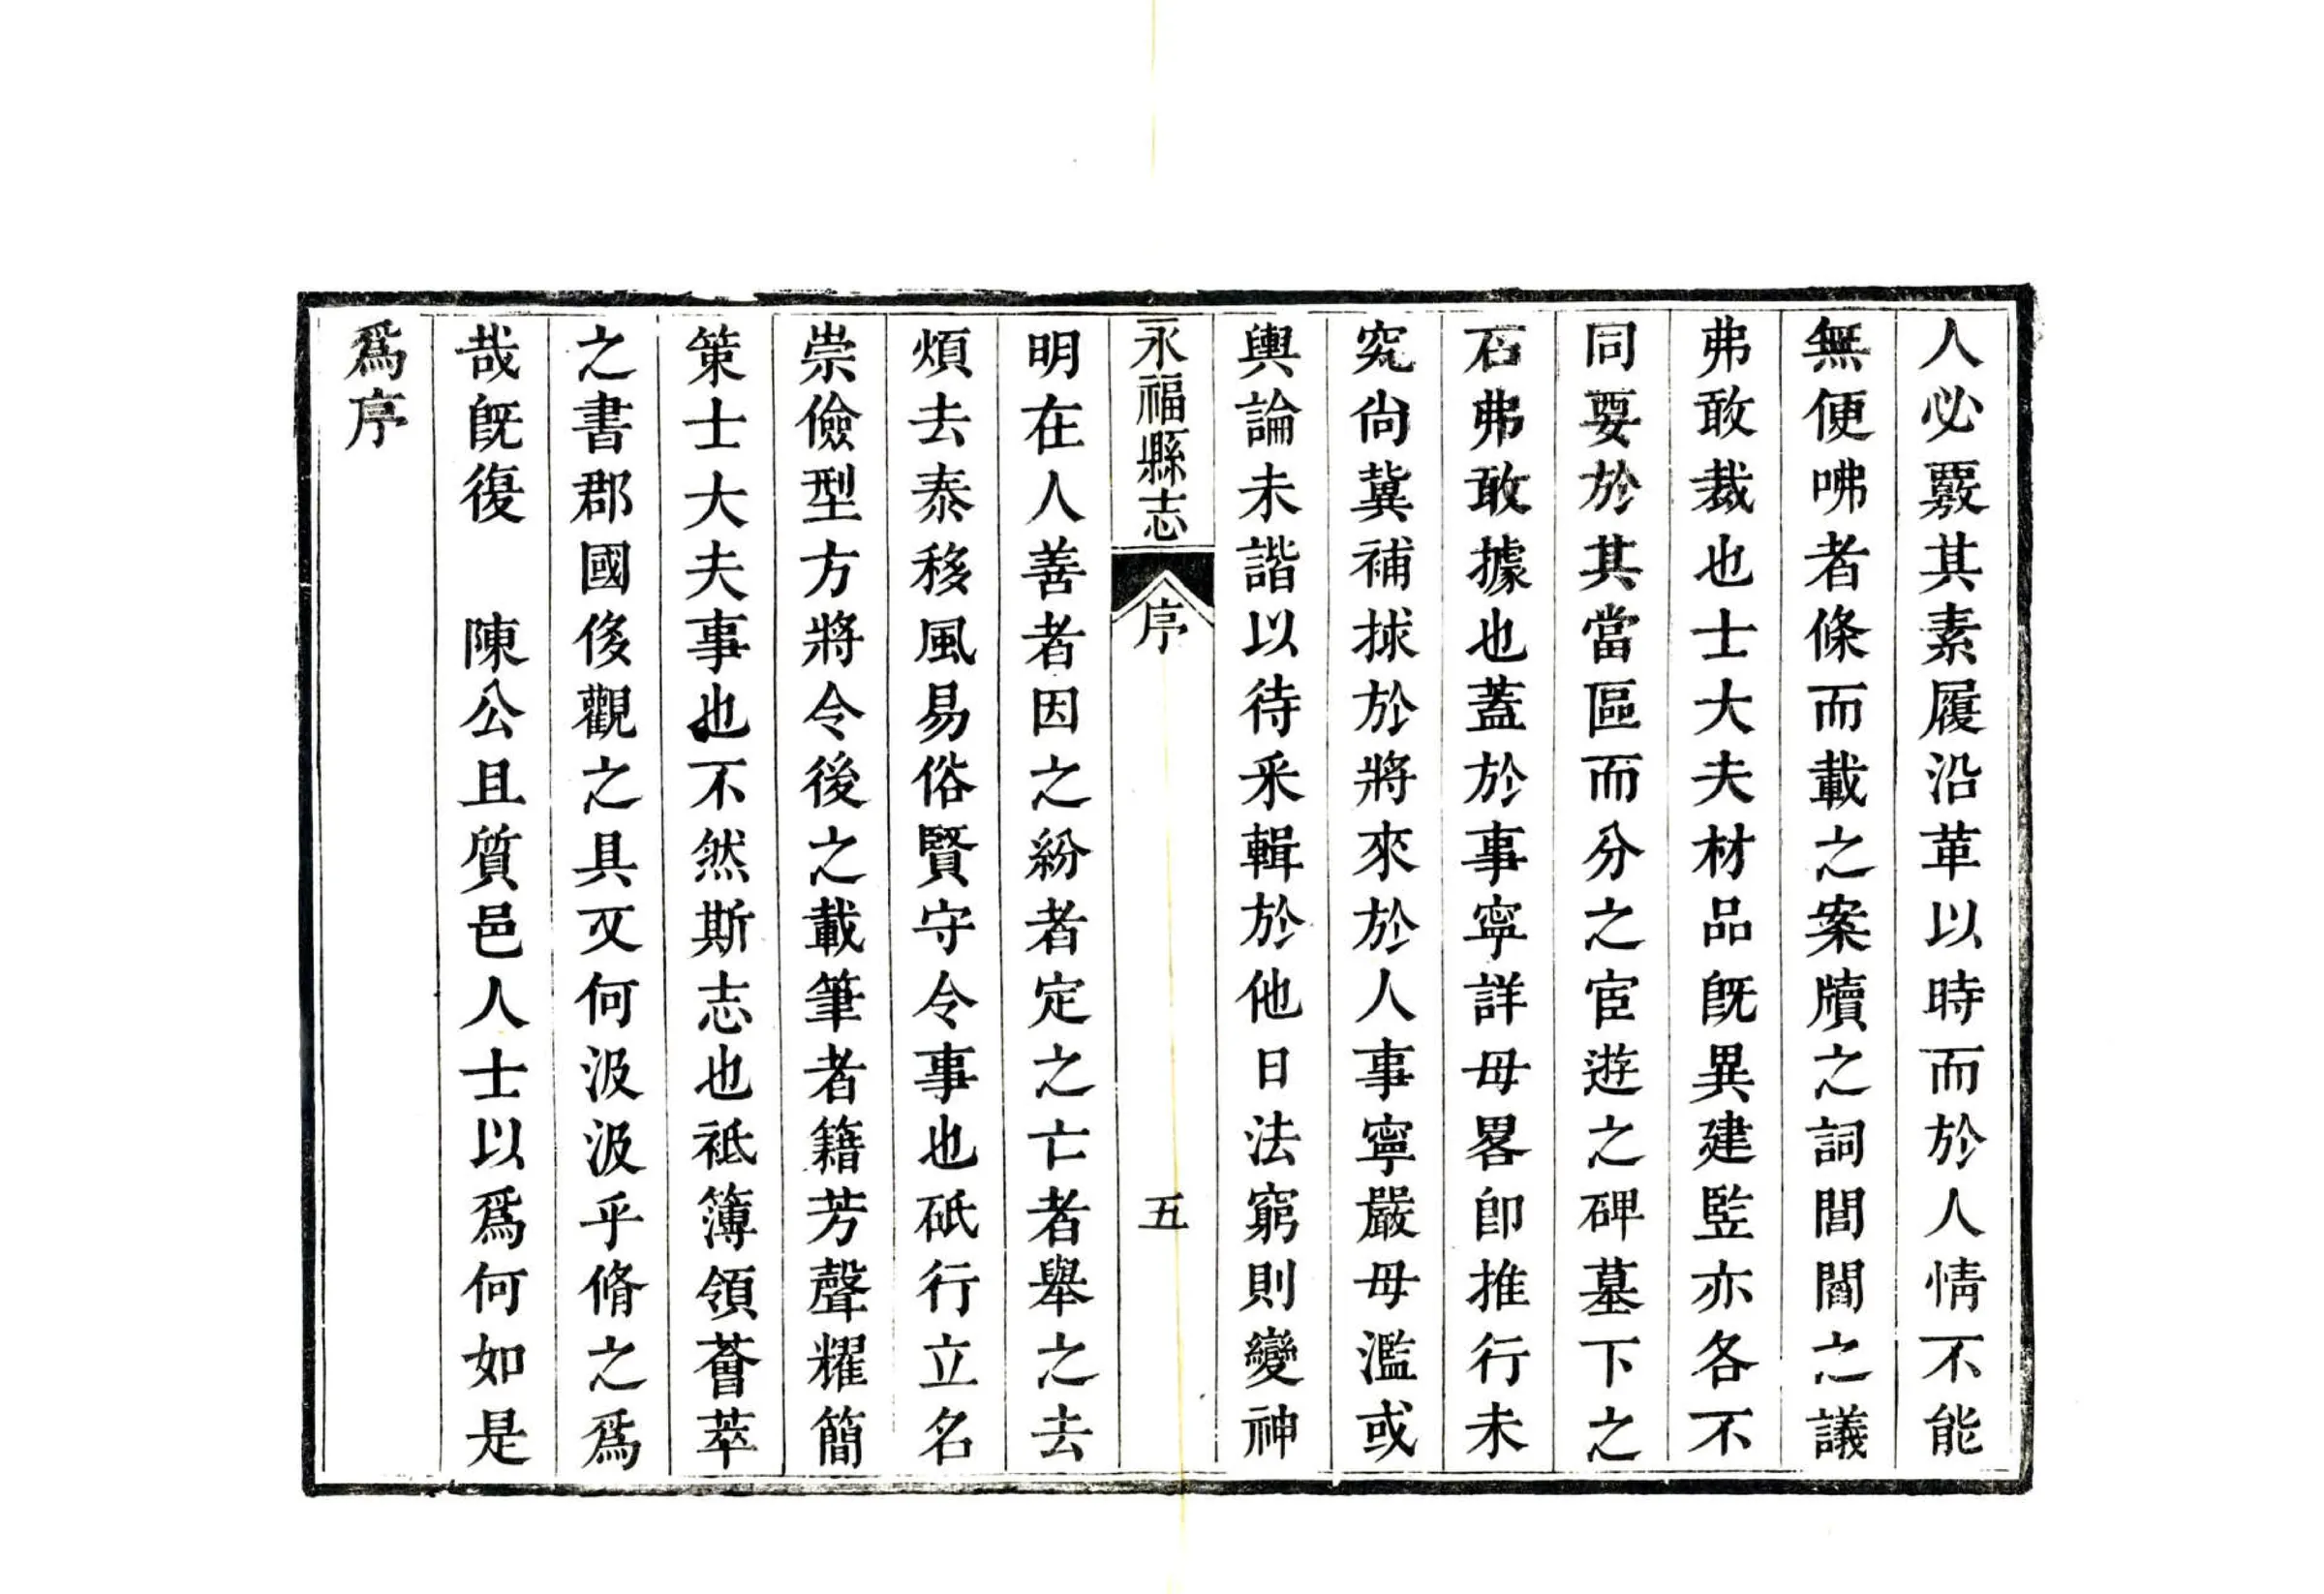 人必覈其素履沿革以時而於人情不能
無便咈者條而載之案牘之詞閭閻之議
弗敢裁也士大夫材品旣異建監亦各不
同要於其當區而分之宦遊之碑墓下之
石弗敢據也蓋於事寧詳毋畧卽推行未
究尙冀補捄於將來於人事寧嚴毋濫或
輿論未諧以待采輯於他日法窮則變神
永福縣志 序 五
明在人善者因之紛者定之亡者舉之去
煩去泰移風易俗賢守令事也砥行立名
崇儉型方將令後之載筆者籍芳聲耀簡
策士大夫事也不然斯志也祗簿領薈萃
之書郡國俊觀之具又何汲汲乎脩之爲
哉旣復 陳公且質邑人士以爲何如是
爲序